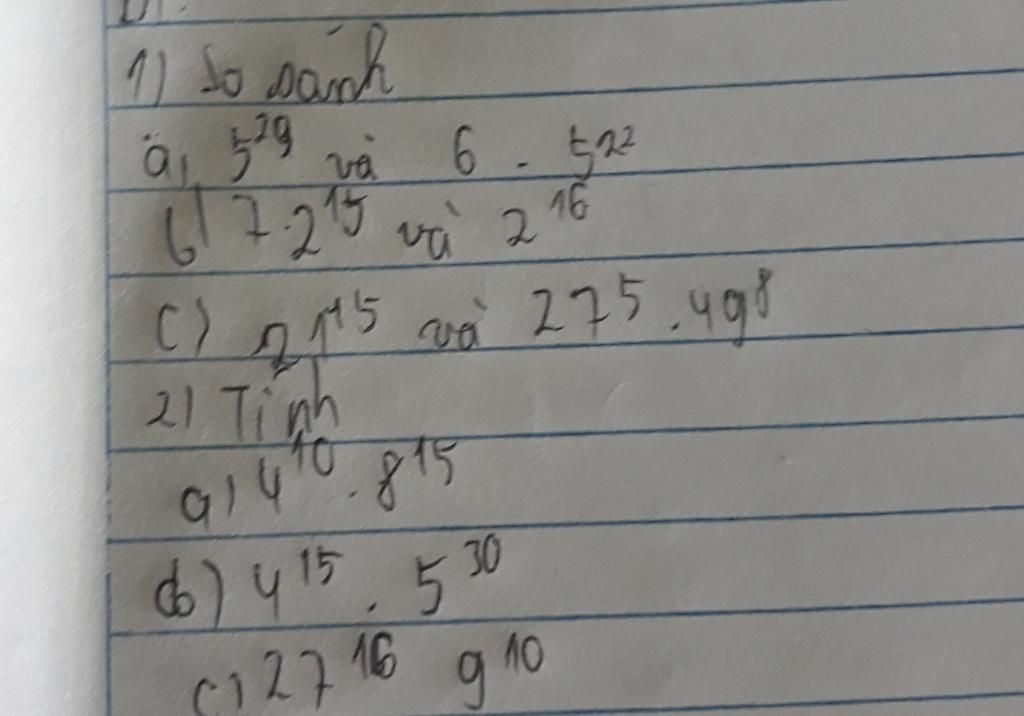 1) So sánh
a, 5²⁹ và 6 . 5²²
b) 7.2¹⁵ và 2¹⁶
c) 21¹⁵ và 27⁵.49⁸
2) Tính
a) 4¹⁰ . 8¹⁵
b) 4¹⁵ . 5³⁰
c) 27¹⁶ 9¹⁰